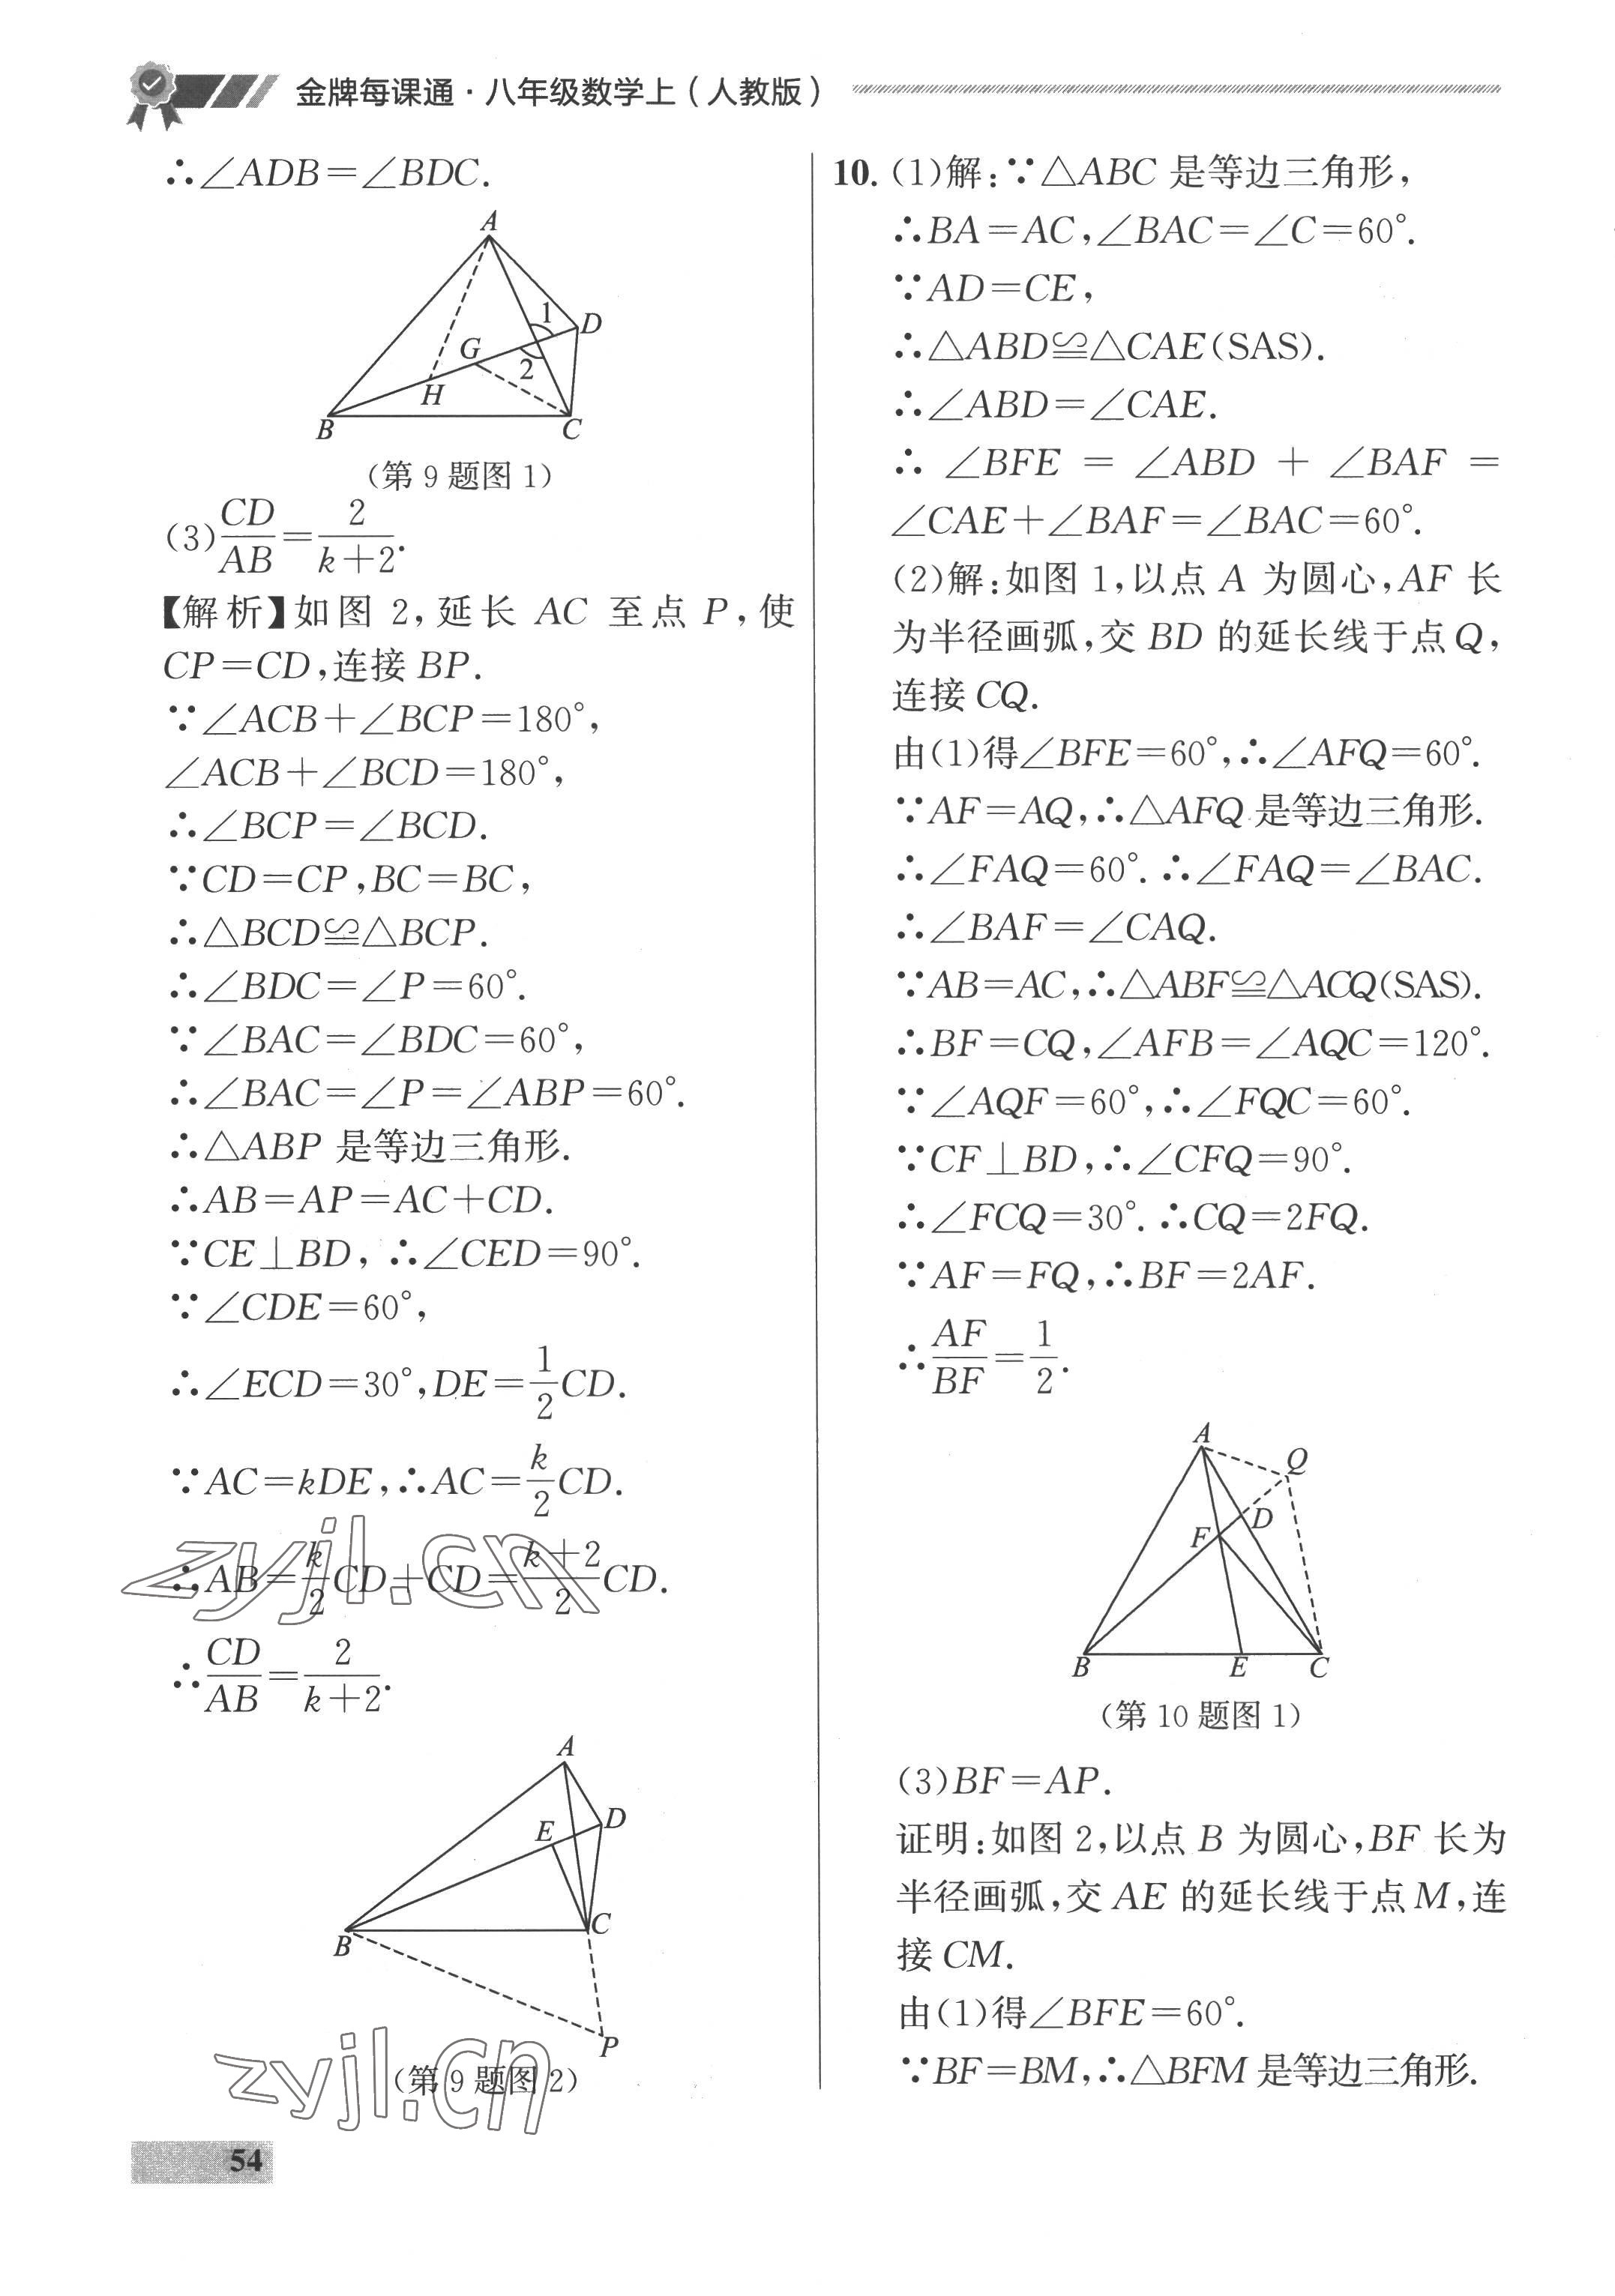 金牌每课通·八年级数学上(人教版)
∴∠ADB=∠BDC.
A
1
D
G
2
H
B
C
(第 9 题图 1)
(3)CD/AB=2/(k+2).
【解析】如图 2,延长 AC 至点 P,使
CP=CD,连接 BP.
∵∠ACB+∠BCP=180°,
∠ACB+∠BCD=180°,
∴∠BCP=∠BCD.
∵CD=CP,BC=BC,
∴△BCD≌△BCP.
∴∠BDC=∠P=60°.
∵∠BAC=∠BDC=60°,
∴∠BAC=∠P=∠ABP=60°.
∴△ABP 是等边三角形.
∴AB=AP=AC+CD.
∵CE⊥BD, ∴∠CED=90°.
∵∠CDE=60°,
∴∠ECD=30°,DE=1/2CD.
∵AC=kDE,∴AC=k/2CD.
∴AB=k/2CD+CD=(k+2)/2CD.
zyjl.cn
∴CD/AB=2/(k+2).
A
D
E
C
B
P
(第 9 题图 2)
zyjl.cn
54
10. (1)解:∵△ABC 是等边三角形,
∴BA=AC,∠BAC=∠C=60°.
∵AD=CE,
∴△ABD≌△CAE(SAS).
∴∠ABD=∠CAE.
∴ ∠BFE = ∠ABD + ∠BAF =
∠CAE+∠BAF=∠BAC=60°.
(2)解:如图 1,以点 A 为圆心,AF 长
为半径画弧,交 BD 的延长线于点 Q,
连接 CQ.
由(1)得∠BFE=60°,∴∠AFQ=60°.
∵AF=AQ,∴△AFQ 是等边三角形.
∴∠FAQ=60°. ∴∠FAQ=∠BAC.
∴∠BAF=∠CAQ.
∵AB=AC,∴△ABF≌△ACQ(SAS).
∴BF=CQ,∠AFB=∠AQC=120°.
∵∠AQF=60°,∴∠FQC=60°.
∵CF⊥BD,∴∠CFQ=90°.
∴∠FCQ=30°. ∴CQ=2FQ.
∵AF=FQ,∴BF=2AF.
∴AF/BF=1/2.
A
Q
D
F
B
E
C
(第 10 题图 1)
(3)BF=AP.
证明:如图 2,以点 B 为圆心,BF 长为
半径画弧,交 AE 的延长线于点 M,连
接 CM.
由(1)得∠BFE=60°.
∵BF=BM,∴△BFM 是等边三角形.